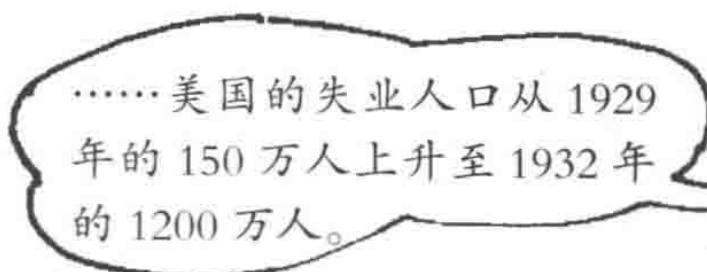 ……美国的失业人口从 1929
年的 150 万人上升至 1932 年
的 1200 万人。